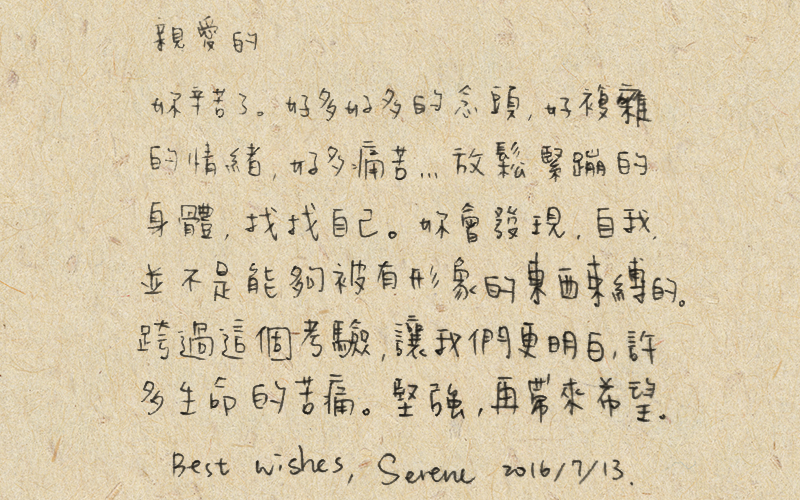 親愛的
妳辛苦了。好多好多的念頭,好複雜
的情緒,好多痛苦...放鬆緊蹦的
身體,找找自己。妳會發現,自我,
並不是能夠被有形象的東西束縛的。
跨過這個考驗,讓我們更明白,許
多生命的苦痛。堅強,再帶來希望。
Best wishes, Serene 2016/7/13.